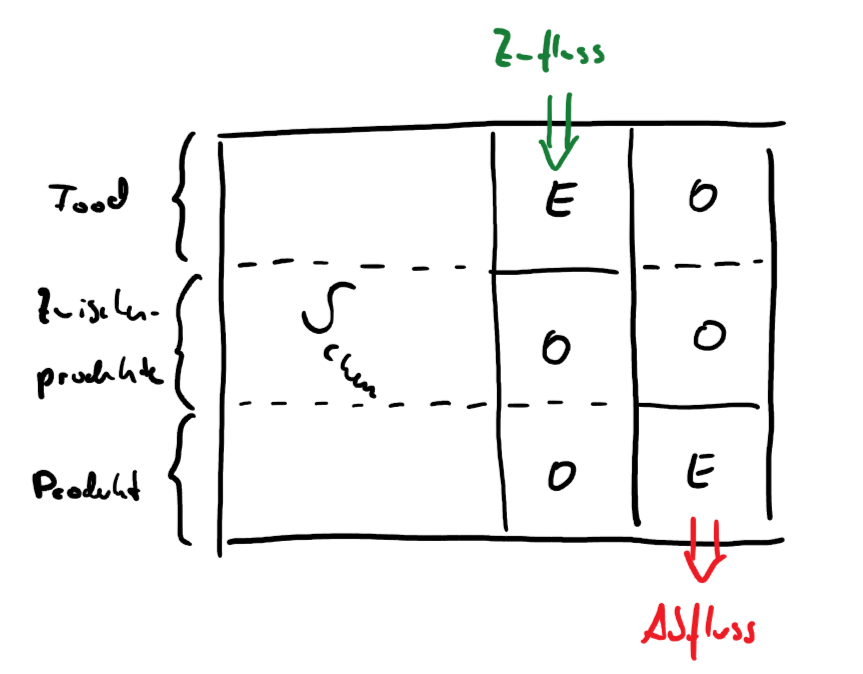 Zufluss
Food
E
O
Zwischen-
produkte
S
chem
O
O
Produkt
O
E
Abfluss